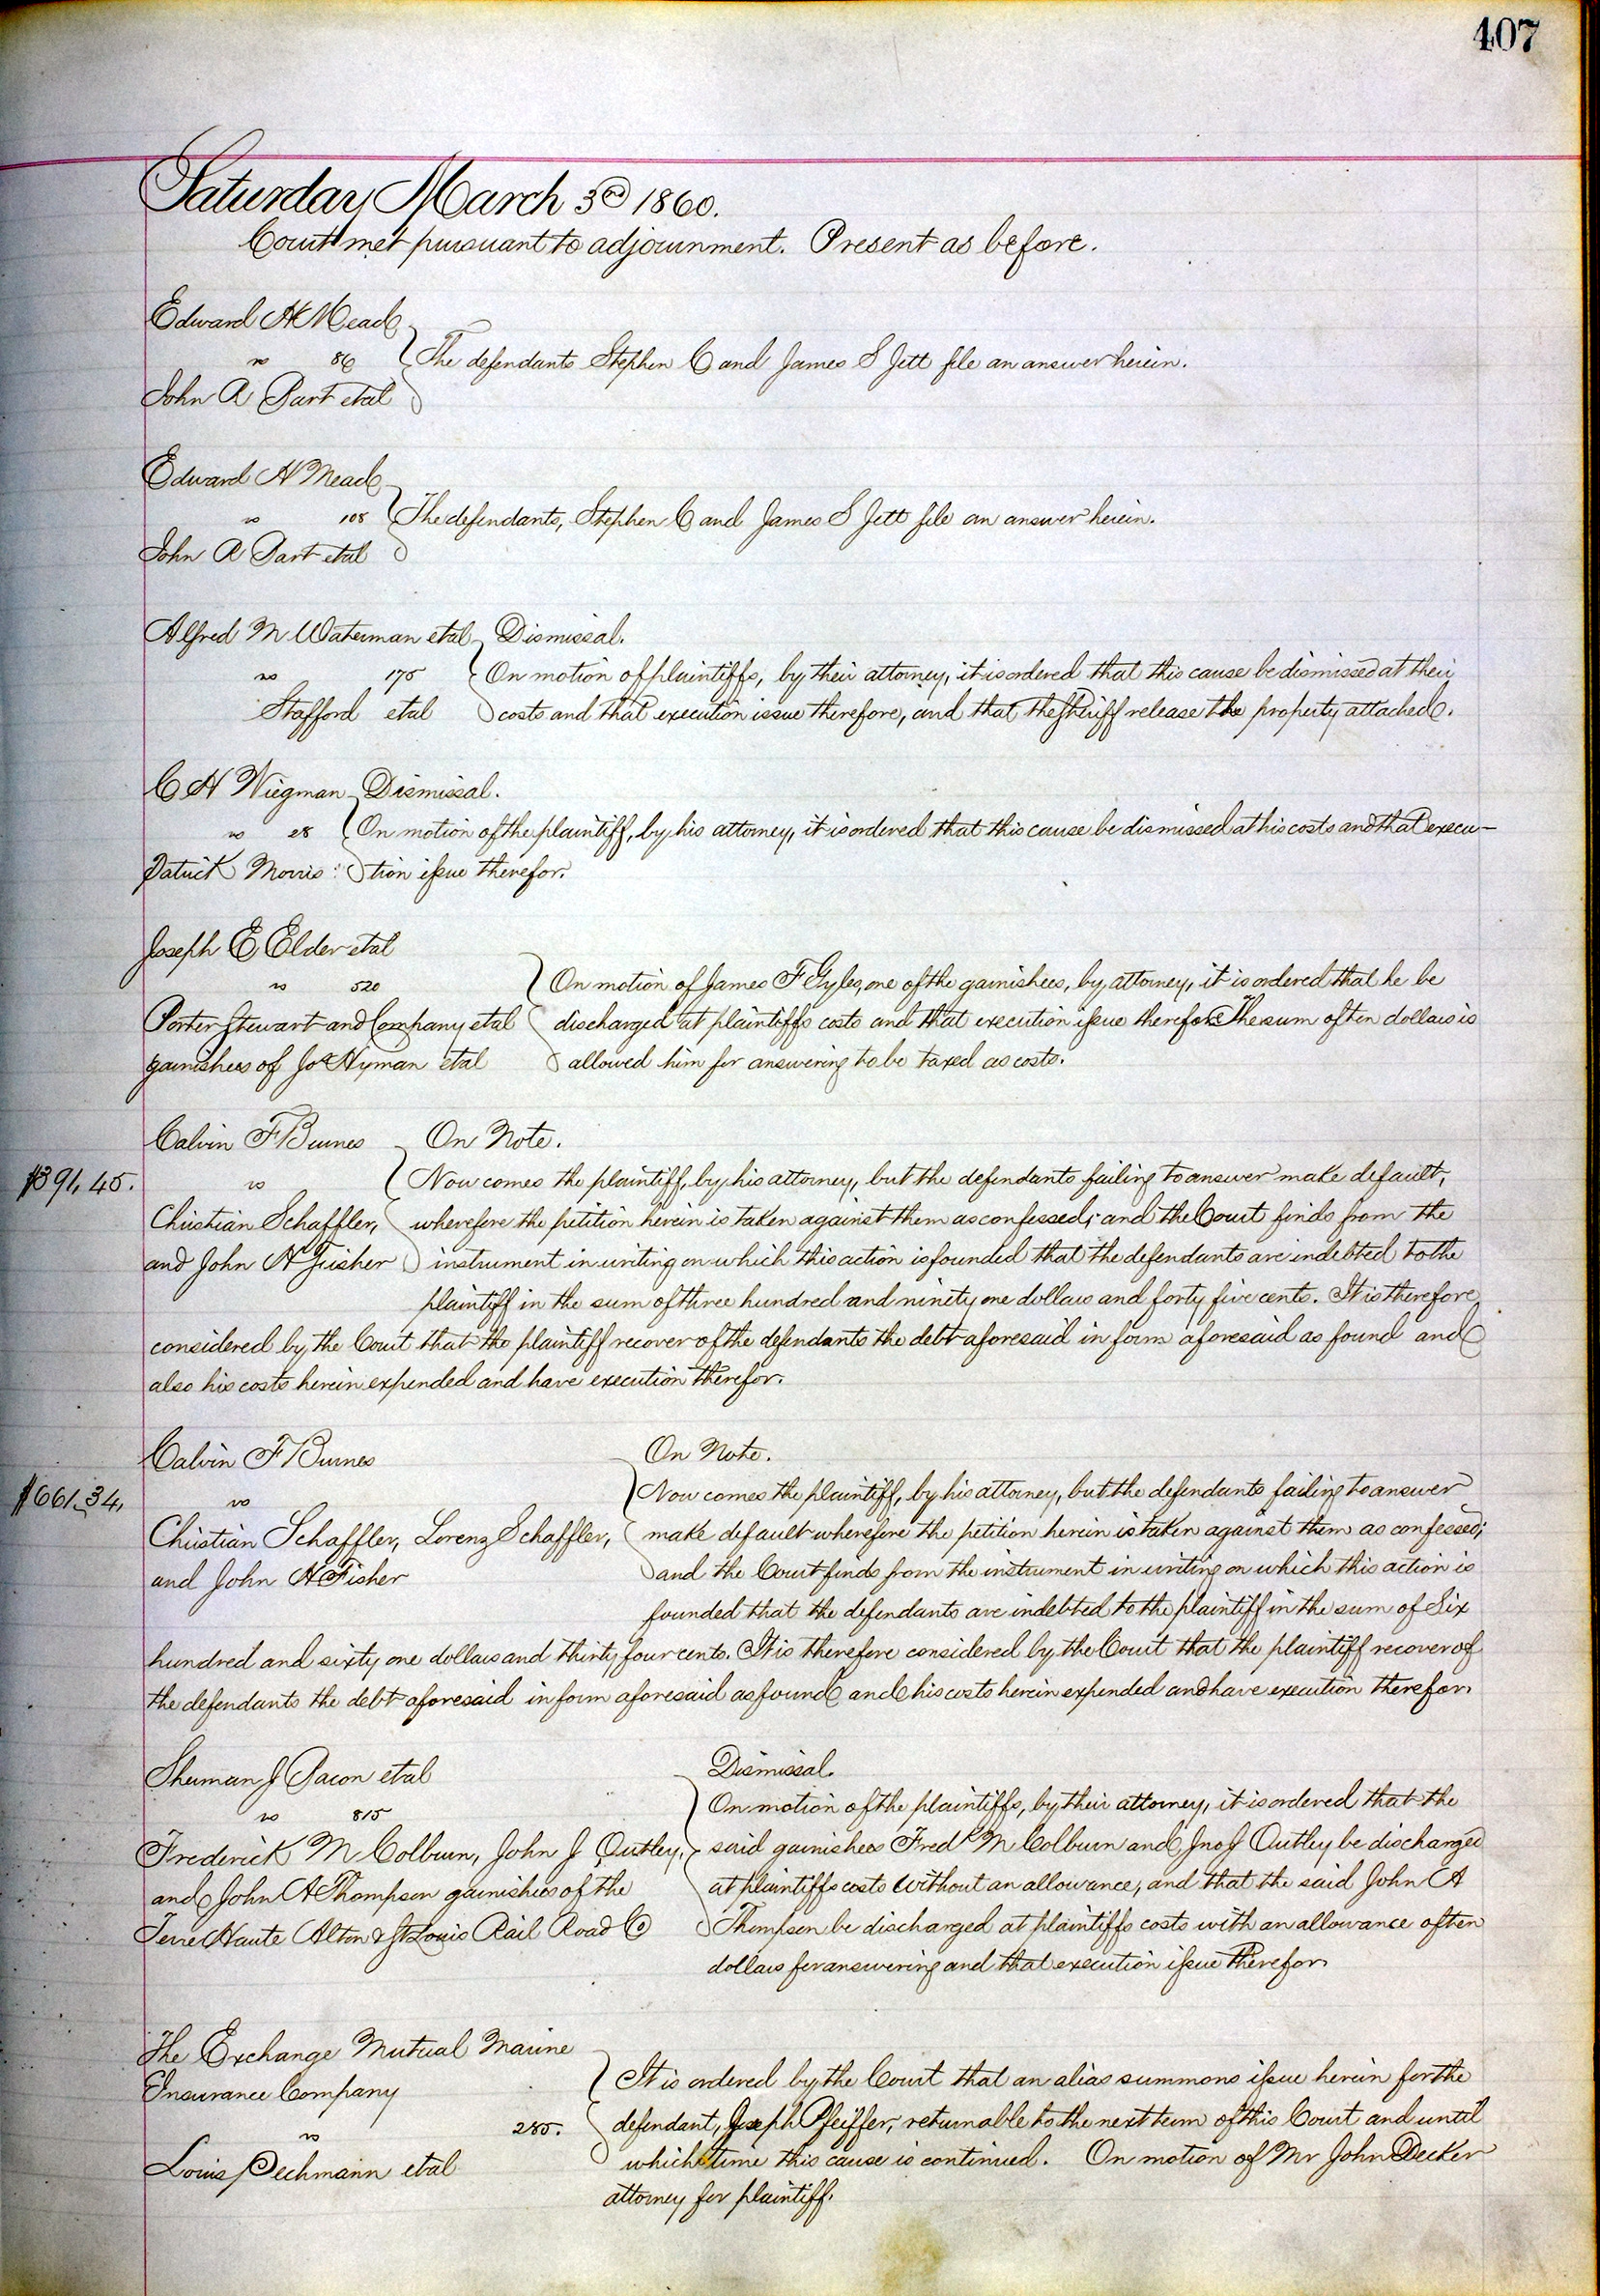 407
Saturday March 3rd 1860.
Court met pursuant to adjournment. Present as before.
Edward H Mead
vs 86 The defendants Stephen C and James S Jett file an answer herein.
John A Part etal
Edward H Mead
vs 108 The defendants, Stephen C and James S Jett file an answer herein.
John A Part etal
Alfred M Waterman etal Dismissal.
vs 175 On motion of plaintiffs, by their attorney, it is ordered that this cause be dismissed at their
Stafford etal costs and that execution issue therefore, and that the Sheriff release the property attached.
C H Wiegman Dismissal.
vs 28 On motion of the plaintiff, by his attorney, it is ordered that this cause be dismissed at his costs and that execu-
Patrick Morris tion issue therefor.
Joseph E Elder etal
vs 520 On motion of James F Gyles, one of the garnishees, by attorney, it is ordered that he be
Porter Stewart and Company etal discharged at plaintiffs costs and that execution issue therefor. The sum of ten dollars is
garnishees of Jos Hyman etal allowed him for answering to be taxed as costs.
Calvin F Burnes On Note.
$391,45. vs Now comes the plaintiff, by his attorney, but the defendants failing to answer make default,
Christian Schaffler, wherefore the petition herein is taken against them as confessed; and the Court finds from the
and John H Fisher instrument in writing on which this action is founded that the defendants are indebted to the
plaintiff in the sum of three hundred and ninety one dollars and forty five cents. It is therefore
considered by the Court that the plaintiff recover of the defendants the debt aforesaid in form aforesaid as found and
also his costs herein expended and have execution therefor.
Calvin F Burnes On Note.
$661,34, vs Now comes the plaintiff, by his attorney, but the defendants failing to answer
Christian Schaffler, Lorenz Schaffler, make default wherefore the petition herein is taken against them as confessed;
and John H Fisher and the Court finds from the instrument in writing on which this action is
founded that the defendants are indebted to the plaintiff in the sum of Six
hundred and sixty one dollars and thirty four cents. It is therefore considered by the Court that the plaintiff recover of
the defendants the debt aforesaid in form aforesaid as found and his costs herein expended and have execution therefor.
Sherman J Bacon etal Dismissal.
vs 815 On motion of the plaintiffs, by their attorney, it is ordered that the
Frederick M Colburn, John J Outley, said garnishees Fredk M Colburn and Jno J Outley be discharged
and John A Thompson garnishees of the at plaintiffs costs without an allowance, and that the said John A
Terre Haute Alton & St Louis Rail Road Co Thompson be discharged at plaintiffs costs with an allowance of ten
dollars for answering and that execution issue therefor.
The Exchange Mutual Marine
Insurance Company It is ordered by the Court that an alias summons issue herein for the
vs 285. defendant, Joseph Pfeiffer, returnable to the next term of this Court and until
Louis Dechmann etal which time this cause is continued. On motion of Mr John Decker
attorney for plaintiff.